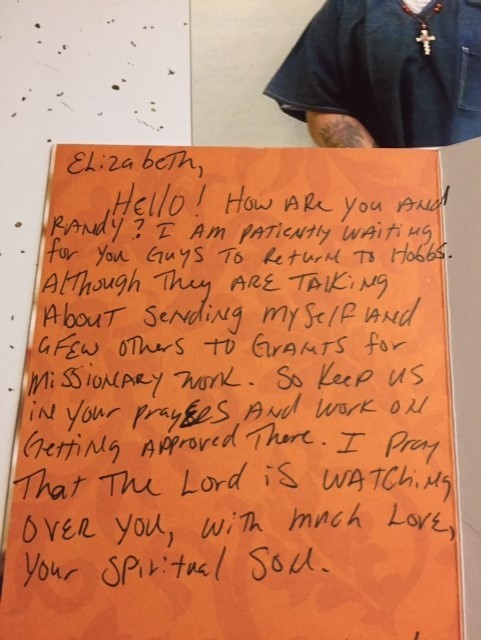 Elizabeth,
Hello! How are you and
Randy? I am patiently waiting
for you guys to return to Hobbs.
Although they are talking
about sending myself and
a few others to Grants for
missionary work. So keep us
in your prayers and work on
getting approved there. I pray
that the Lord is watching
over you, with much love,
your spiritual son.